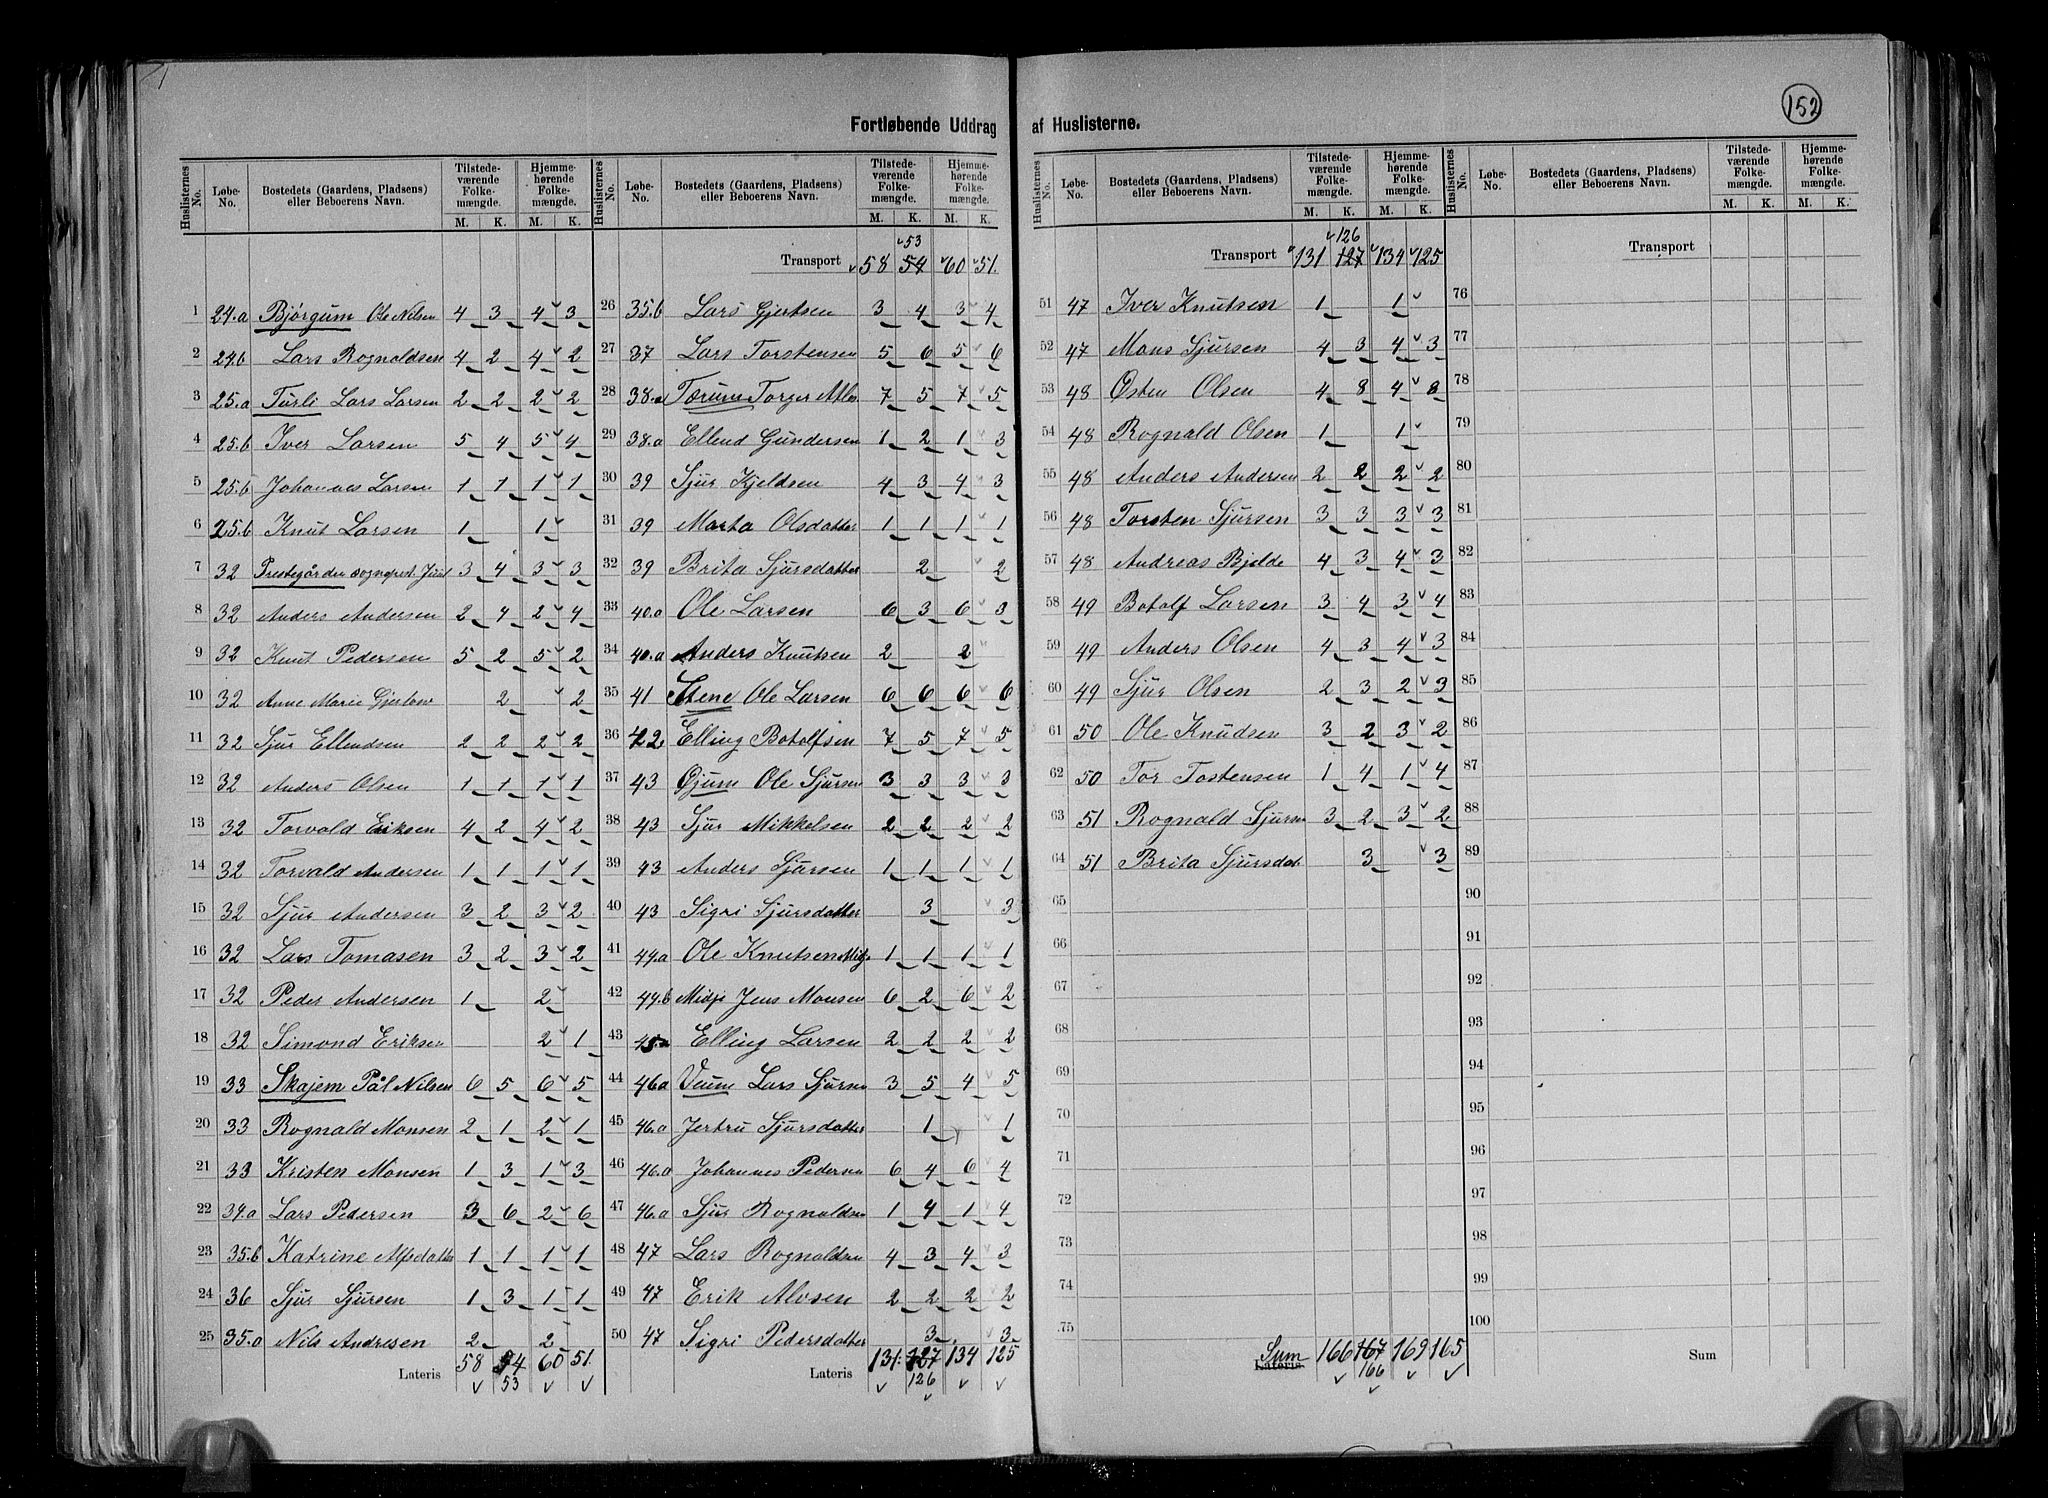 152
Fortløbende Uddrag af Huslisterne.
Huslisternes No. | Løbe-No. | Bostedets (Gaardens, Pladsens) eller Beboerens Navn. | Tilstedeværende Folkemængde. M. K. | Hjemmehørende Folkemængde. M. K.
1 24.a Bjørgum Ole Nilsen 4 3 4 3
2 24.b Lars Rognaldsen 4 2 4 2
3 25.a Turli Lars Larsen 2 2 2 2
4 25.b Iver Larsen 5 4 5 4
5 25.b Johannes Larsen 1 1 1 1
6 25.b Knut Larsen 1 1
7 32 Prestegården sognepr. 3 4 3 3
8 32 Anders Andersen 2 4 2 4
9 32 Knut Pedersen 5 2 5 2
10 32 Anne Marie 2 2
11 32 Sjur Ellendsen 2 2 2 2
12 32 Anders Olsen 1 1 1 1
13 32 Torvald Eriksen 4 2 4 2
14 32 Torvald Andersen 1 1 1 1
15 32 Sjur Andersen 3 2 3 2
16 32 Lars Tomasen 3 2 3 2
17 32 Peder Andersen 1 2
18 32 Simond Eriksen 2 1
19 33 Skajem Pål Nilsen 6 5 6 5
20 33 Rognald Monsen 2 1 2 1
21 33 Kristen Monsen 1 3 1 3
22 34.a Lars Pedersen 3 6 2 6
23 35.b Katrine 1 1 1 1
24 36 Sjur Sjursen 1 3 1 1
25 35.a Nils Andresen 2 2
Lateris 58 54 60 51
53
Transport 58 54 60 51
53
26 35.b Lars Gjertsen 3 4 3 4
27 37 Lars Torstensen 5 6 5 6
28 38.a Tærum Torger 7 5 7 5
29 38.a Ellend Gundersen 1 2 1 3
30 39 Sjur Kjeldsen 4 3 4 3
31 39 Marta Olsdatter 1 1 1 1
32 39 Brita Sjursdatter 2 2
33 40.a Ole Larsen 6 3 6 3
34 40.a Anders Knutsen 2 2
35 41 Stene Ole Larsen 6 6 6 6
36 42 Elling Botolfsen 7 5 7 5
37 43 Gjum Ole Sjursen 3 3 3 3
38 43 Sjur Mikkelsen 2 2 2 2
39 43 Anders Sjursen 1 1 1 1
40 43 Sigri Sjursdatter 3 3
41 44.a Ole Knutsen 1 1 1 1
42 44.b Midji Jens Monsen 6 2 6 2
43 45.a Elling Larsen 2 2 2 2
44 46.a Veum Lars Sjursn 3 5 4 5
45 46.a Jertru Sjursdatter 1 1
46 46.a Johannes Pedersn 6 4 6 4
47 46.a Sjur Rognaldsn 1 4 1 4
48 47 Lars Rognaldsn 4 3 4 3
49 47 Erik Alvsen 2 2 2 2
50 47 Sigri Pedersdatter 3 3
Lateris 131 127 134 125
126
Huslisternes No. | Løbe-No. | Bostedets (Gaardens, Pladsens) eller Beboerens Navn. | Tilstedeværende Folkemængde. M. K. | Hjemmehørende Folkemængde. M. K.
126
Transport 131 127 134 125
51 47 Iver Knutsen 1 1
52 47 Mons Sjursen 4 3 4 3
53 48 Østen Olsen 4 8 4 8
54 48 Rognald Olsen 1 1
55 48 Anders Andersen 2 2 2 2
56 48 Torsten Sjursen 3 3 3 3
57 48 Andreas Bjelde 4 3 4 3
58 49 Botolf Larsen 3 4 3 4
59 49 Anders Olsen 4 3 4 3
60 49 Sjur Olsen 2 3 2 3
61 50 Ole Knudsen 3 2 3 2
62 50 Tor Tostensen 1 4 1 4
63 51 Rognald Sjursn 3 2 3 2
64 51 Brita Sjursdat 3 3
65
66
67
68
69
70
71
72
73
74
75
Sum Lateris 166 167 169 165
166
Transport
76
77
78
79
80
81
82
83
84
85
86
87
88
89
90
91
92
93
94
95
96
97
98
99
100
Sum